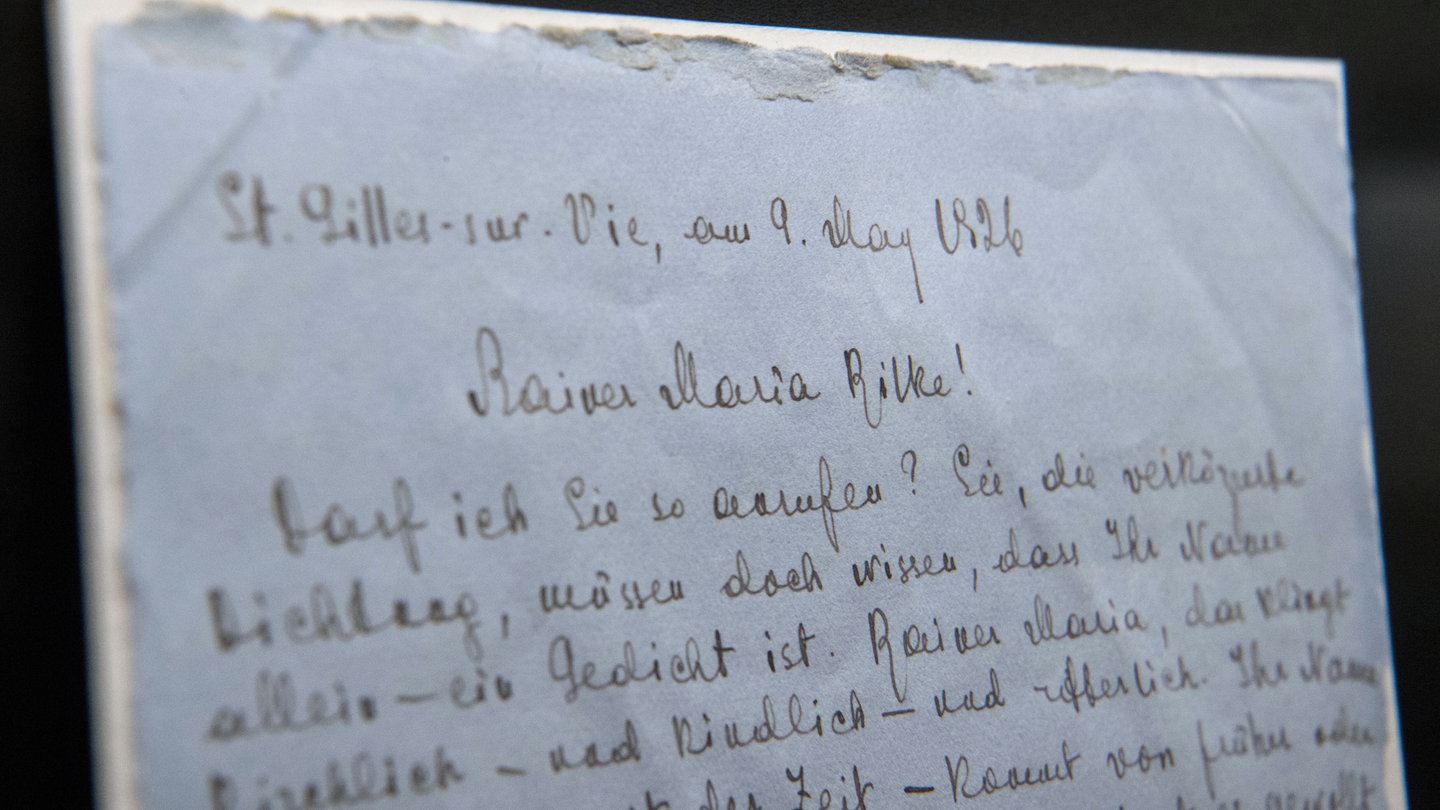 St. Gilles-sur-Vie, am 9. May 1926
Rainer Maria Rilke!
Darf ich Sie so anrufen? Sie, die verkörperte
Dichtung, müssen doch wissen, dass Ihr Name
allein – ein Gedicht ist. Rainer Maria, das klingt
kirchlich – und kindlich – und ritterlich. Ihr Name
der Zeit – kommt von früher oder